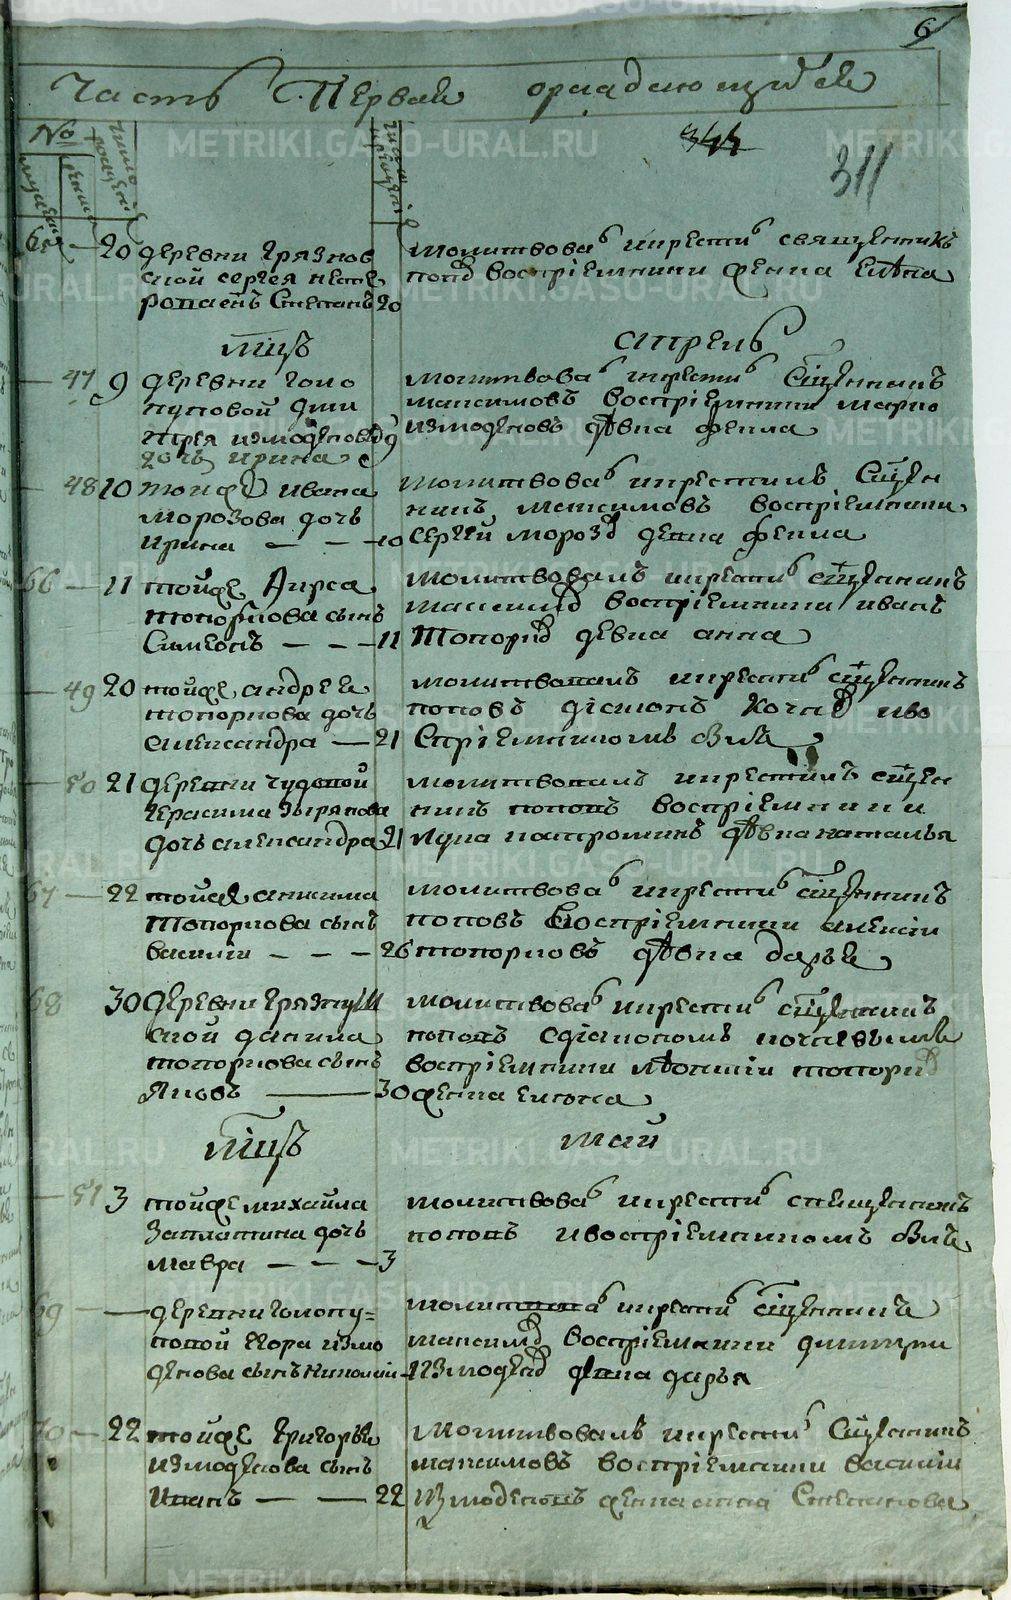 6
Часть Первая ораждающихся
344
311
№
20 деревни Грязнов
ской сергея несте
рова сынъ Степанъ 20
молитвовалъ и крестилъ священникъ
попо воспріемники девка елена
мцъ апрель
47 9 деревни голо
пуповой дми
трея измоденова 9
дочь ирина
молитвовалъ и крестилъ сщенникъ
максимовъ воспріемники марко
измоденовъ девка фекла
48 10 тойже ивана
морозова дочь
ирина — — — 10
молитвовалъ и крестилъ сщен
никъ максимовъ воспріемники
сергей морозо девка фекла
66 — 11 тойже
топоркова сынъ
Симеонъ — — — 11
молитвовалъ и крестилъ сщенникъ
максимо воспріемники иванъ
Топорко девка анна
49 20 тойже андрея
топоркова дочь
александра — 21
молитвовалъ и крестилъ сщенникъ
поповъ діаконъ Кочне иво
спріемникомъ былъ
50 21 деревни чудовой
герасима Зырянова
дочь александра 21
молитвовалъ и крестилъ сщен
никъ поповъ воспріемники
девка наталья
67 — 22 тойже анисима
Топоркова сынъ
василий — — — 26
молитвовалъ и крестилъ сщенникъ
поповъ воспріемники алексій
топорковъ девка дарья
68 30 деревни грязну
ской данила
топоркова сынъ
Яковъ — 30
молитвовалъ и крестилъ сщенникъ
поповъ сдіакономъ кочневымъ
воспріемники леонтій топорко
девка
мцъ май
51 3 тойже михайла
Заплатина дочь
мавра — — — 3
молитвовалъ и крестилъ свещенникъ
поповъ ивоспріемникомъ былъ
69 — деревни голопу=
повой егора измо
денова сынъ николай
молитвова и крестилъ сщенникъ
максимо воспріемники димитри
Измодено девка дарья
70 — 22 тойже григорья
измоденова сынъ
Иванъ — — 22
молитвовалъ и крестилъ сщенникъ
максимовъ воспріемники василій
Измоденовъ девка анна Степанова